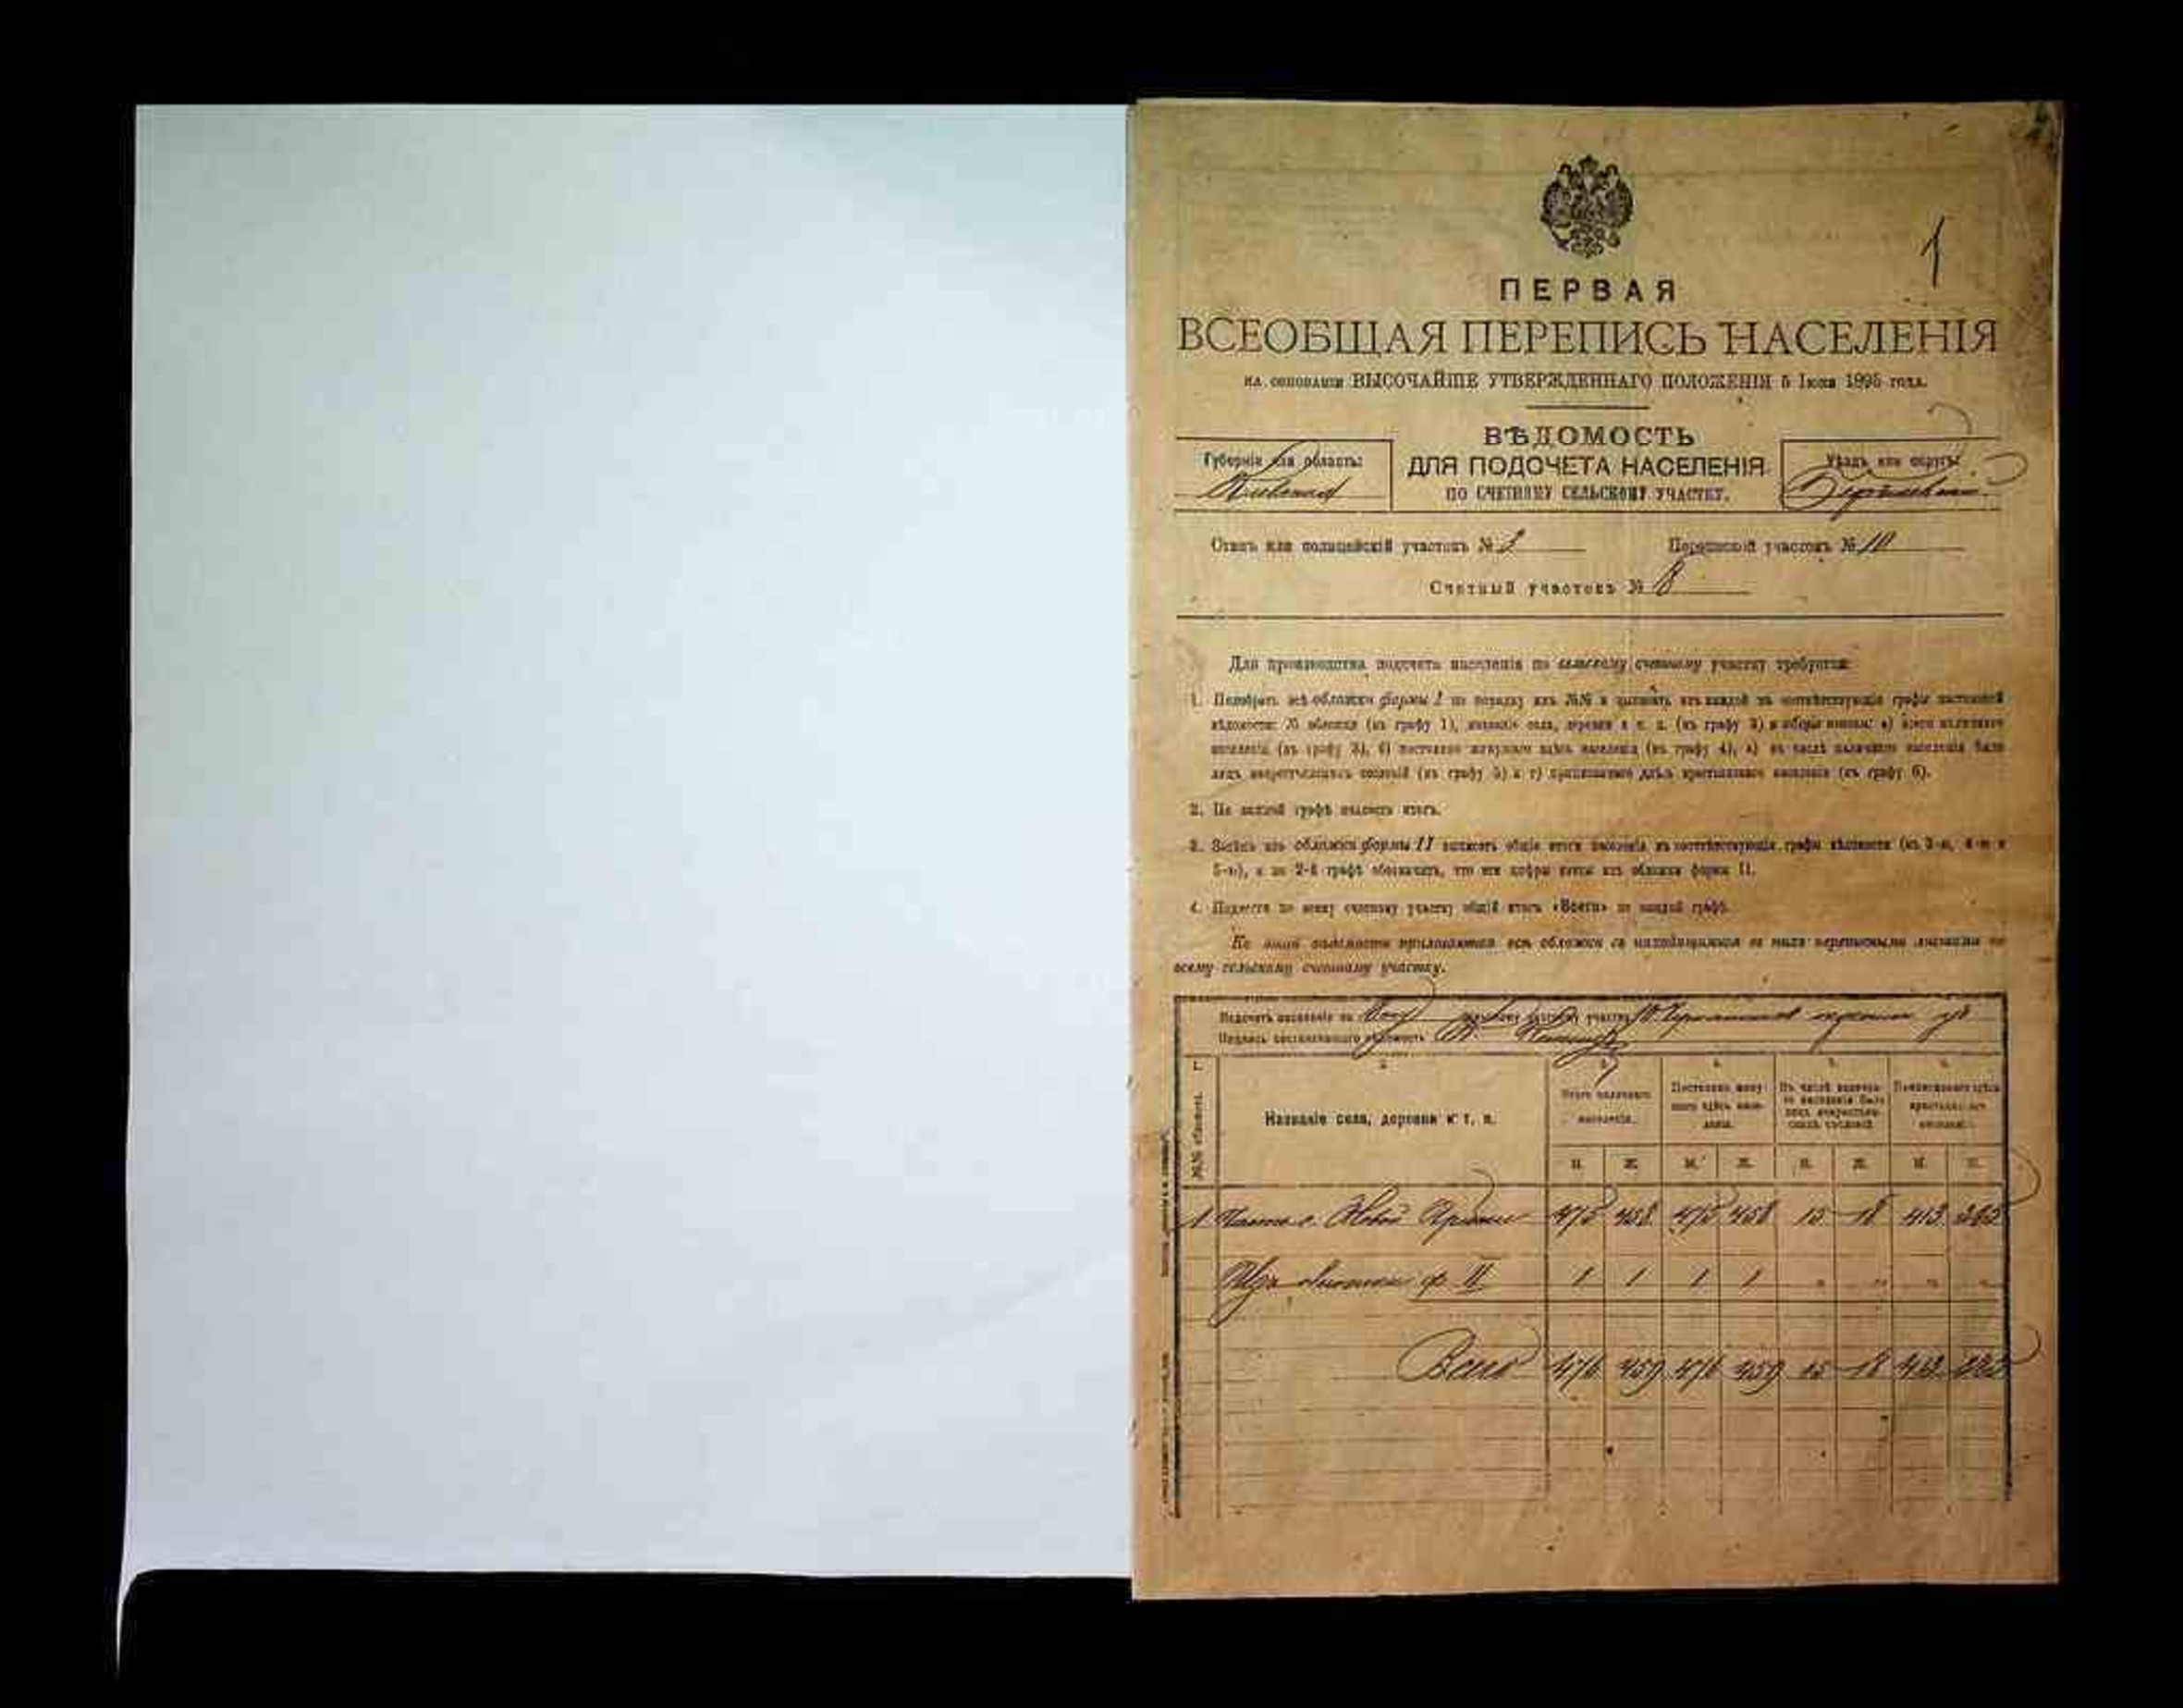 1
ПЕРВАЯ
ВСЕОБЩАЯ ПЕРЕПИСЬ НАСЕЛЕНІЯ
на основаніи ВЫСОЧАЙШЕ УТВЕРЖДЕННАГО ПОЛОЖЕНІЯ 5 Іюня 1895 года.
ВѢДОМОСТЬ
ДЛЯ ПОДСЧЕТА НАСЕЛЕНІЯ
ПО СЧЕТНОМУ СЕЛЬСКОМУ УЧАСТКУ.
Губернія или область:
Кіевская
Уѣздъ или округъ:
Станъ или полицейскій участокъ №
Переписной участокъ № 10
Счетный участокъ № 8
Для производства подсчета населенія по сельскому счетному участку требуется:
1. Подобрать всѣ обложки формы I по порядку ихъ №№ и выписать изъ каждой въ соотвѣтствующія графы настоящей
вѣдомости: № обложки (въ графу 1), названіе села, деревни и т. д. (въ графу 2) и общіе итоги: а) всего наличнаго
населенія (въ графу 3), б) постоянно живущаго здѣсь населенія (въ графу 4), в) въ числѣ наличнаго населенія было
лицъ некрестьянскихъ сословій (въ графу 5) и г) приписаннаго здѣсь крестьянскаго населенія (въ графу 6).
2. По каждой графѣ подвесть итогъ.
3. Затѣмъ изъ обложки формы II выписать общіе итоги населенія въ соотвѣтствующія графы вѣдомости (въ 3-ю, 4-ю и
5-ю), а во 2-й графѣ обозначить, что эти цифры взяты изъ обложки формы II.
4. Подвести по всему счетному участку общій итогъ «Всего» по каждой графѣ.
Къ этой вѣдомости прилагаются всѣ обложки съ находящимися въ нихъ переписными листами по
всему сельскому счетному участку.
Подсчетъ населенія по счетному участку
Подпись составлявшаго вѣдомость
1. 2. 3. 4. 5. 6.
№№ обложекъ.
Названіе села, деревни и т. п.
Всего наличнаго населенія.
Постоянно живущаго здѣсь населенія.
Въ числѣ наличнаго населенія было лицъ некрестьянскихъ сословій.
Приписаннаго здѣсь крестьянскаго населенія.
М. Ж. М. Ж. М. Ж. М. Ж.
1 с. Новой 475 458 475 458 15 18 413
ф. II 1 1 1 1
Всего 476 459 476 459 15 18 413